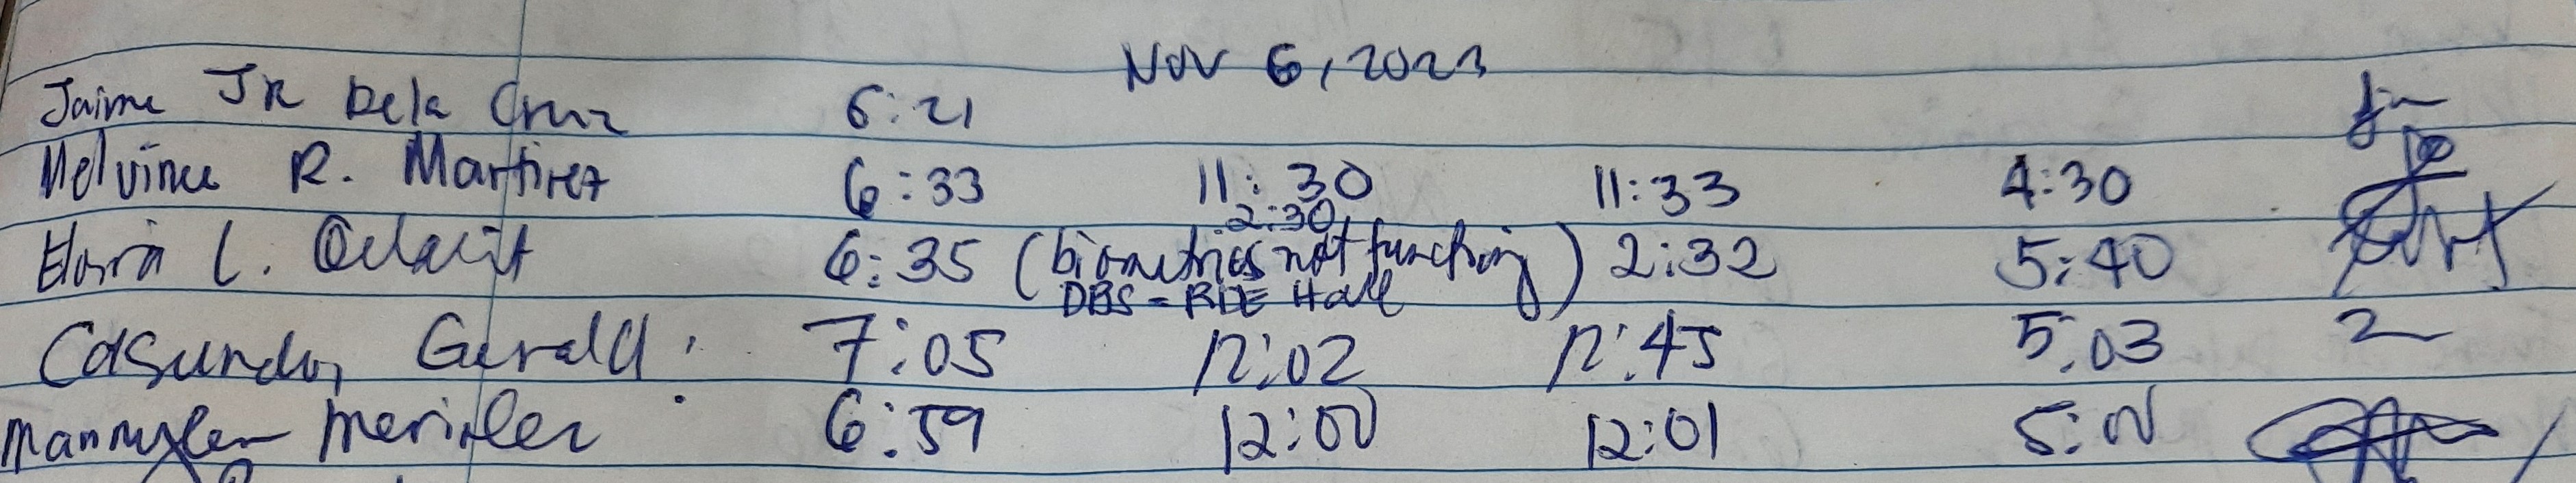 Nov 6, 2023
Jaime JR Dela Cruz 6:21
Melvince R. Martirez 6:33 11:30 11:33 4:30
2:30
L. 6:35 (biometrics not functioning) 2:32 5:40
DBS - RDE Hall
Gerald 7:05 12:02 12:45 5:03
6:59 12:00 12:01